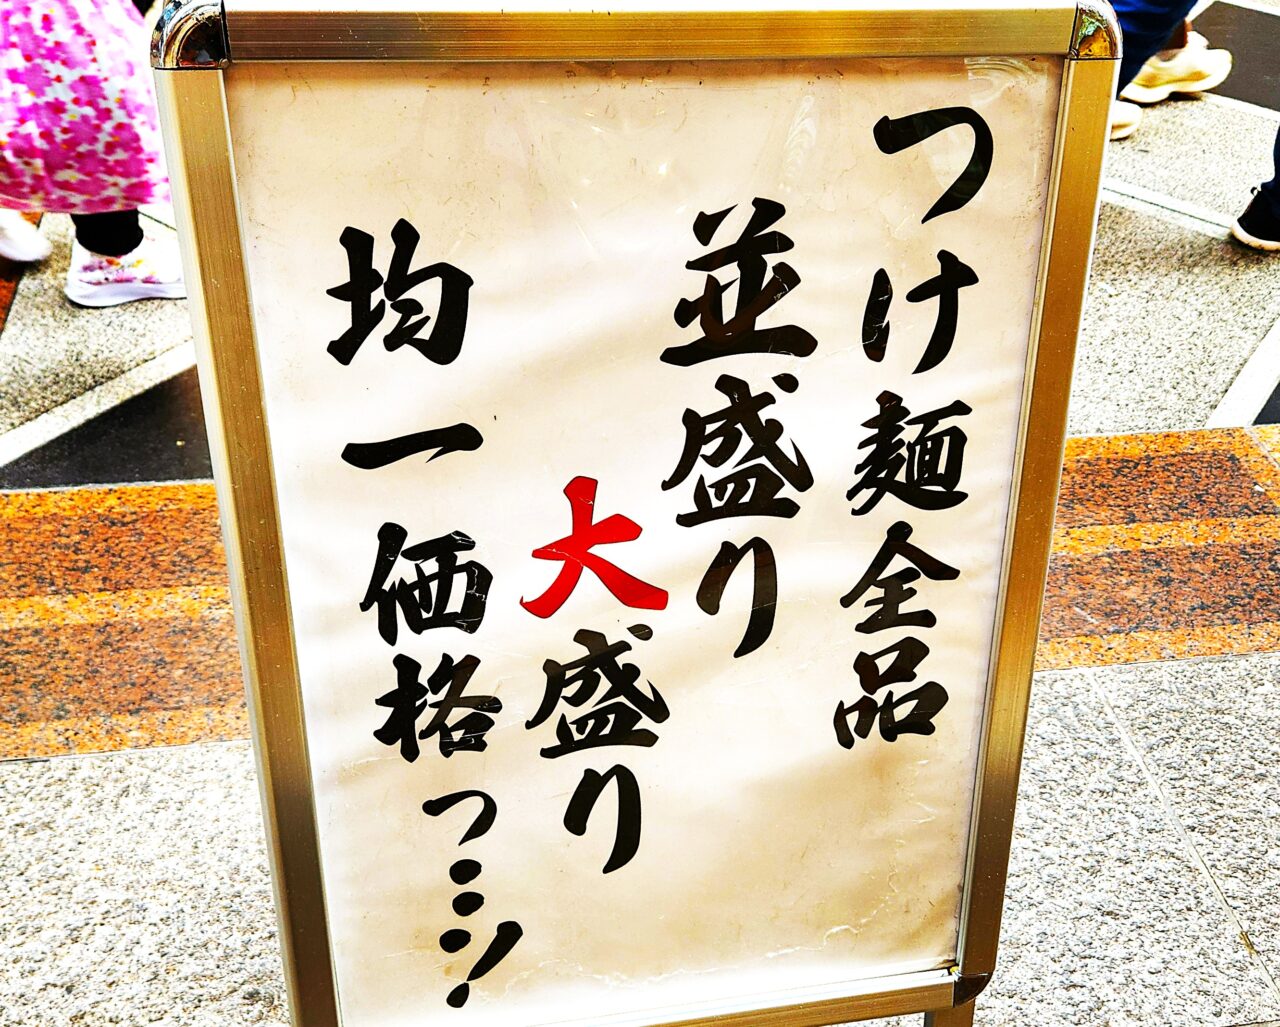 つけ麺全品
並盛り
大盛り
均一価格っ…!